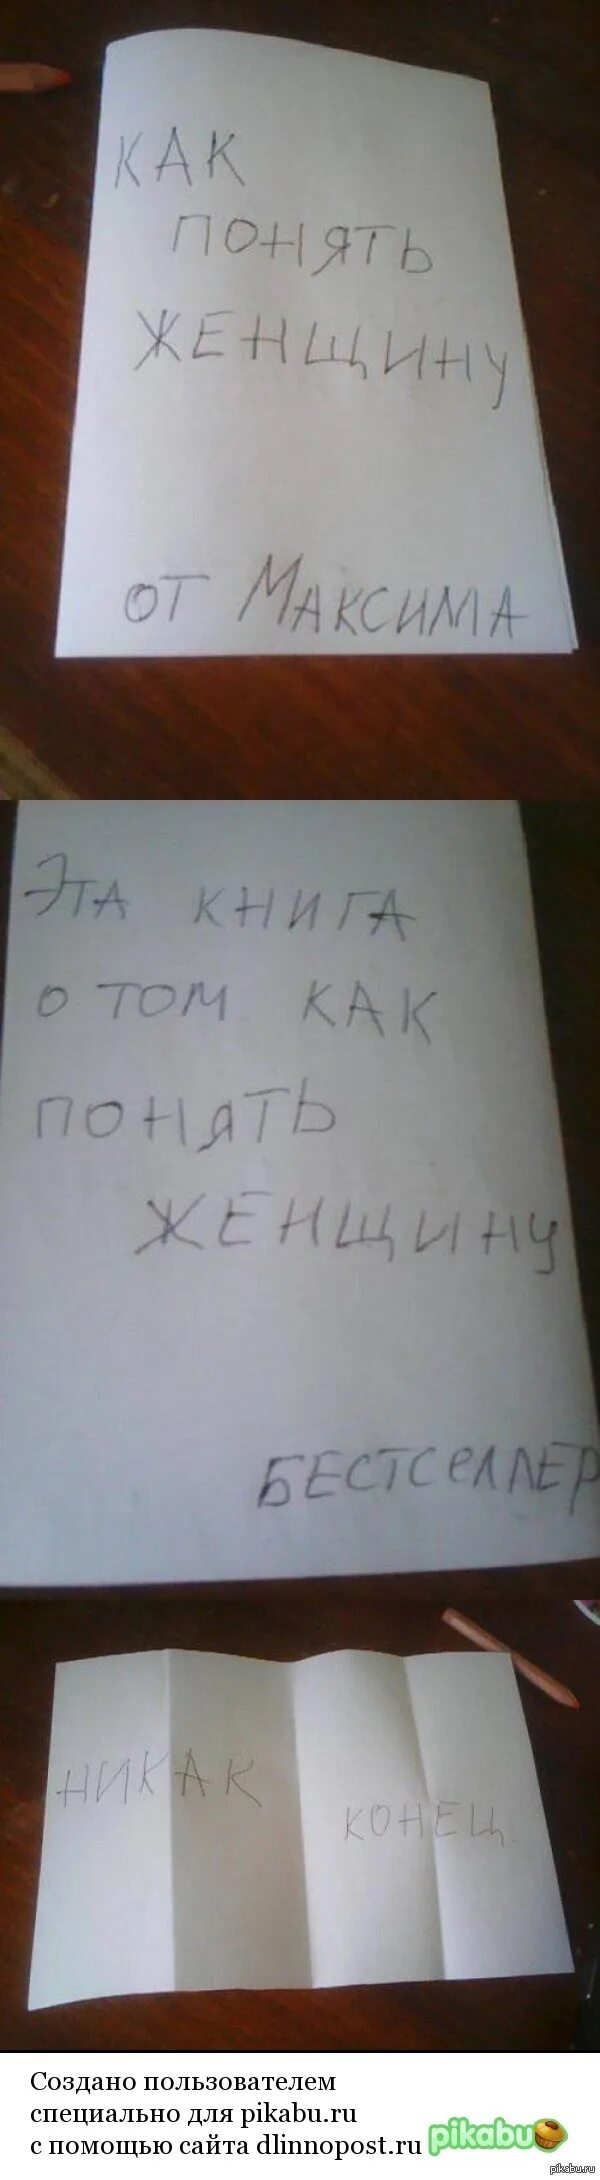 КАК
ПОНЯТЬ
ЖЕНЩИНУ
ОТ МАКСИМА
ЭТА КНИГА
О ТОМ КАК
ПОНЯТЬ
ЖЕНЩИНУ
БЕСТСЕЛЛЕР
НИКАК
КОНЕЦ
Создано пользователем
специально для pikabu.ru
с помощью сайта dlinnopost.ru
pikabu
pikabu.ru